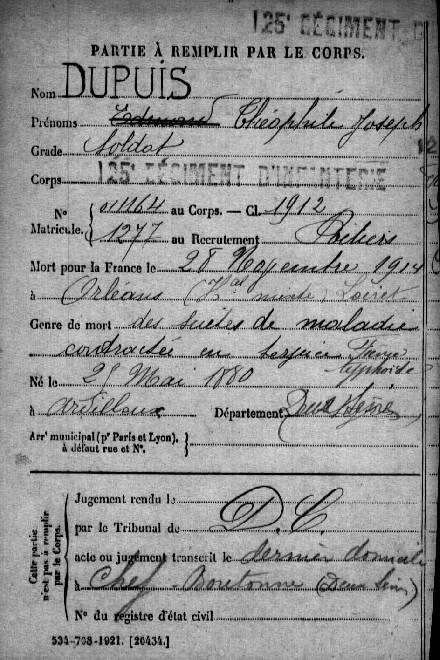 125e RÉGIMENT D
PARTIE À REMPLIR PAR LE CORPS.
Nom DUPUIS
Prénoms Théophile Joseph
Grade Soldat
Corps 125e RÉGIMENT D'INFANTERIE
N° 011164 au Corps. — Cl. 1912
Matricule. 1277 au Recrutement Poitiers
Mort pour la France le 28 Novembre 1914
à Orléans (Hal mixte) Loiret
Genre de mort des suites de maladie
contractée en service Fièvre
typhoïde
Né le 25 Mai 1880
à Ardilleux Département Deux Sèvres
Arrt municipal (pr Paris et Lyon),
à défaut rue et N°.
Cette partie n'est pas à remplir par le Corps.
Jugement rendu le
par le Tribunal de D.C.
acte ou jugement transcrit le dernier domicile
à Chef-Boutonne (Deux Sèvres)
N° du registre d'état civil
534-708-1921. [26434.]